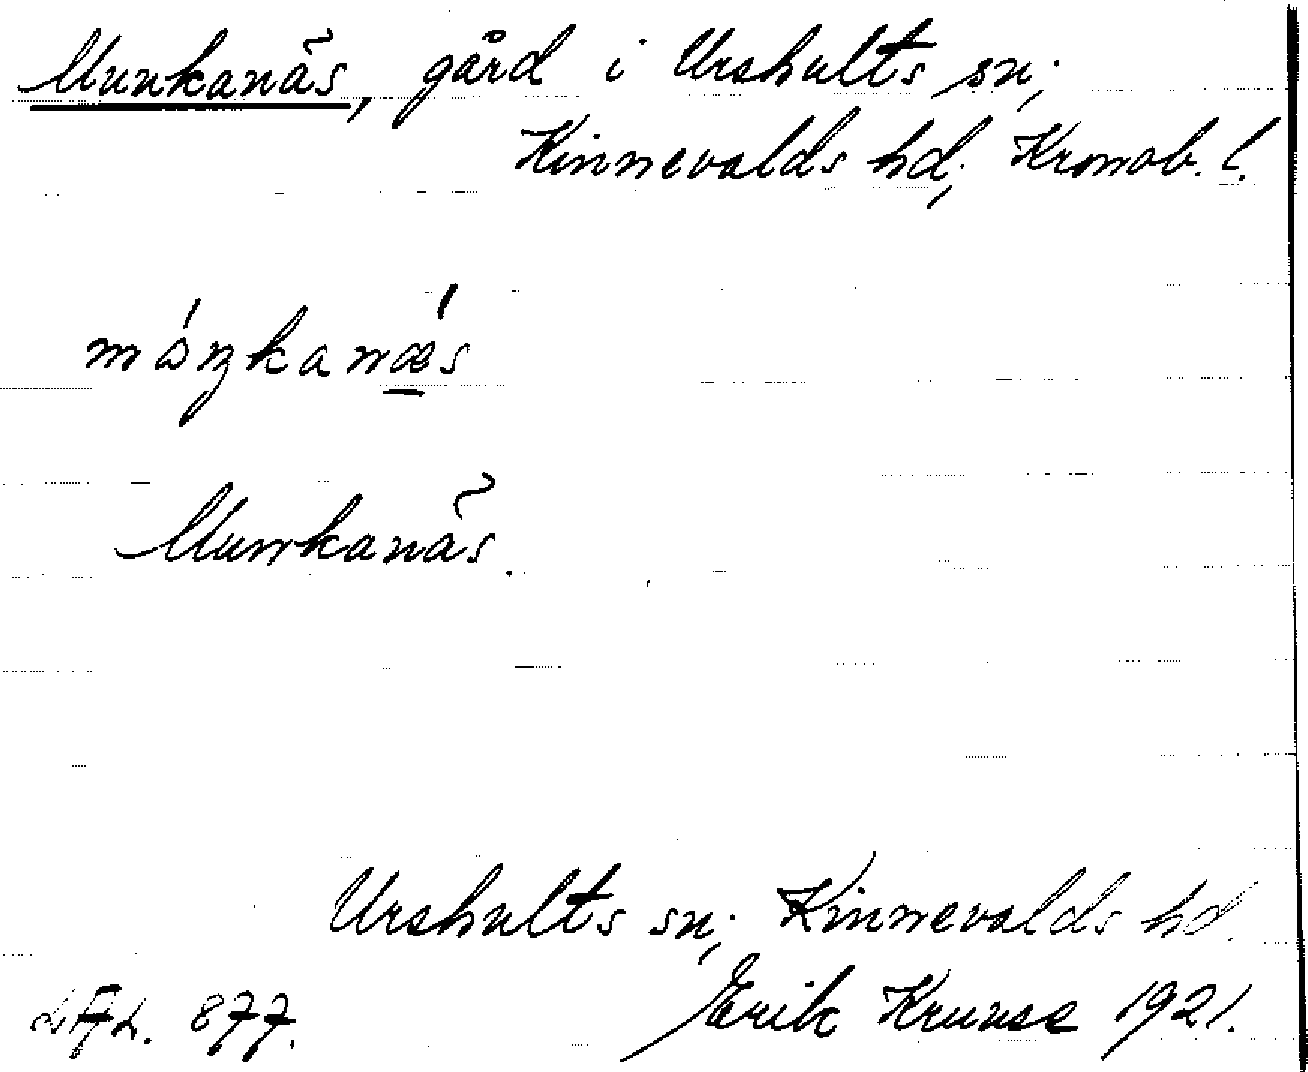 Munkanäs, gård i Urshults sn;
Kinnevalds hd; Kronob. l.
måŋkanǽ̲s
Munkanäs.
Urshults sn; Kinnevalds hd.
877. Erik Kruuse 1921.